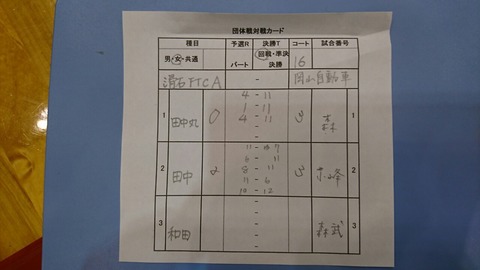 団体戦対戦カード
種目 予選R 決勝T コート 試合番号
男・女・共通 パート 回戦・準決 決勝 16
滑石FTCA - 岡山自動車
4 - 11
1 - 11
1 田中丸 0 4 - 11 3 森 1
-
-
11 - 7
6 - 11
2 田中 2 8 - 11 3 峰 2
11 - 6
10 - 12
-
-
3 和田 - 森武 3
-
-